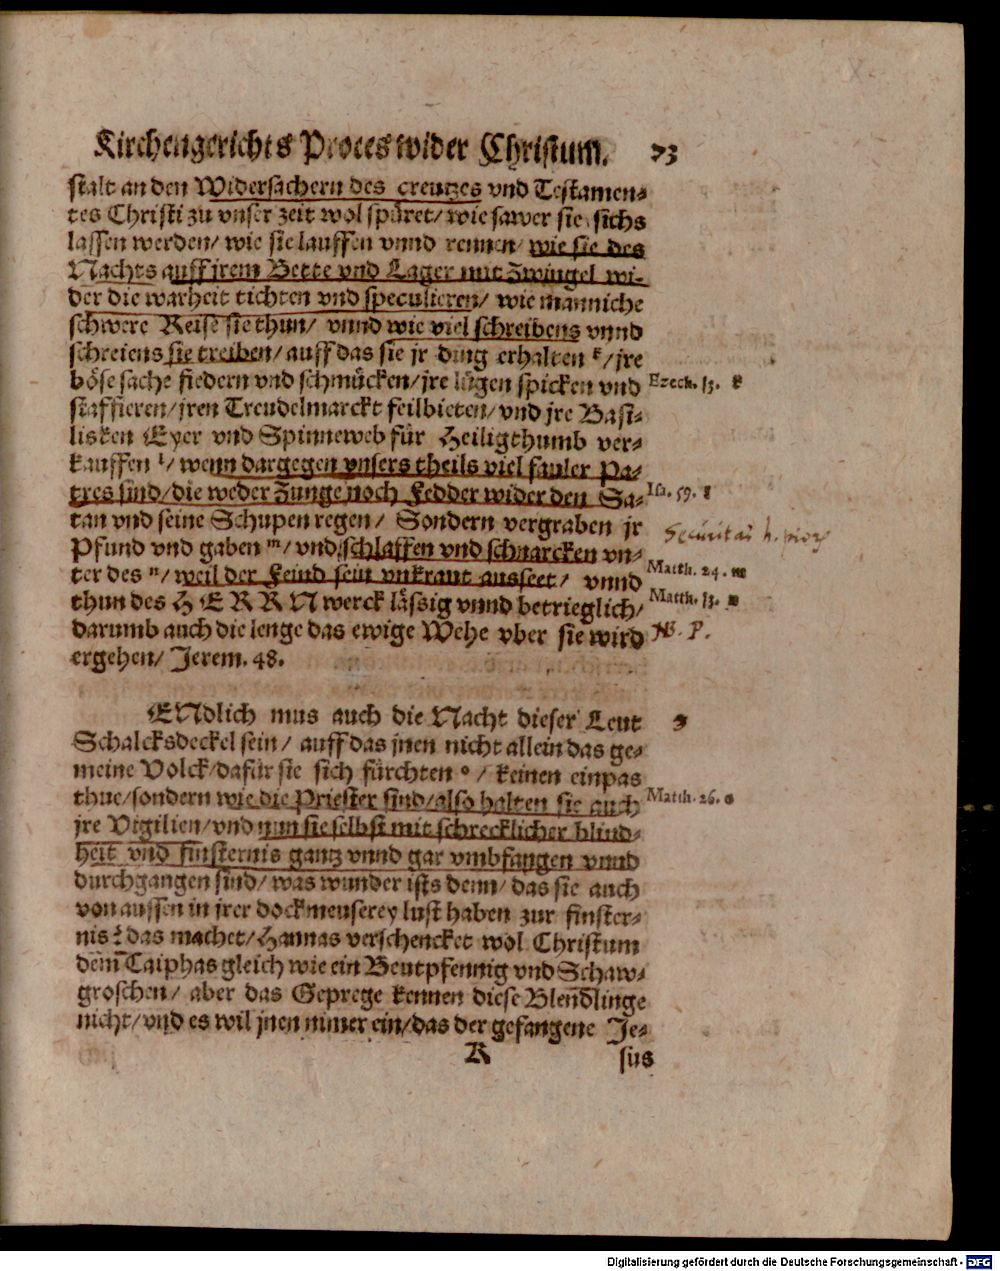 Kirchengerichts Proces wider Christum. 73
stalt an den Widersachern des creutzes vnd Testamen-
tes Christi zu vnser zeit wol spüret/ wie sawer sie sichs
lassen werden/ wie sie lauffen vnnd rennen/ wie sie des
Nachts auff jrem Bette vnd Lager mit Zwingel wi-
der die warheit tichten vnd speculieren/ wie manniche
schwere Reise sie thun/ vnnd wie viel schreibens vnnd
schreiens sie treiben/ auff das sie jr ding erhalten k/ jre
böse sache fiedern vnd schmücken/ jre lügen spicken vnd Ezech. 13. k
staffieren/ jren Treudelmarckt feilbieten/ vnd jre Basi-
lisken Eyer vnd Spinneweb für Heiligthumb ver-
kauffen l/ wenn dargegen vnsers theils viel fauler Pa-
tres sind/ die weder Zunge noch Fedder wider den Sa- Isa. 59. l
tan vnd seine Schupen regen/ Sondern vergraben jr Securitas h.
Pfund vnd gaben m/ vnd schlaffen vnd schnarcken vn-
ter des n/ weil der Feind sein vnkraut ausseet/ vnnd Matth. 24. m
thun des HERRN werck lässig vnnd betrieglich/ Matth. 13. n
darumb auch die lenge das ewige Wehe vber sie wird NB. P.
ergehen/ Jerem. 48.
ENdlich mus auch die Nacht dieser Leut 9
Schalcksdeckel sein/ auff das jnen nicht allein das ge-
meine Volck/ dafür sie sich fürchten o/ keinen einpas
thue/ sondern wie die Priester sind/ also halten sie auch Matth. 26. o
jre Vigilien/ vnd nun sie selbst mit schrecklicher blind-
heit vnd finsternis gantz vnnd gar vmbfangen vnnd
durchgangen sind/ was wunder ists denn/ das sie auch
von aussen in jrer dockmeuserey lust haben zur finster-
nis? das machet/ Hannas verschencket wol Christum
dem Caiphas gleich wie ein Beutpfennig vnd Schaw-
groschen/ aber das Geprege kennen diese Blendlinge
nicht/ vnd es wil jnen nimer ein/ das der gefangene Je-
K sus
Digitalisierung gefördert durch die Deutsche Forschungsgemeinschaft - DFG